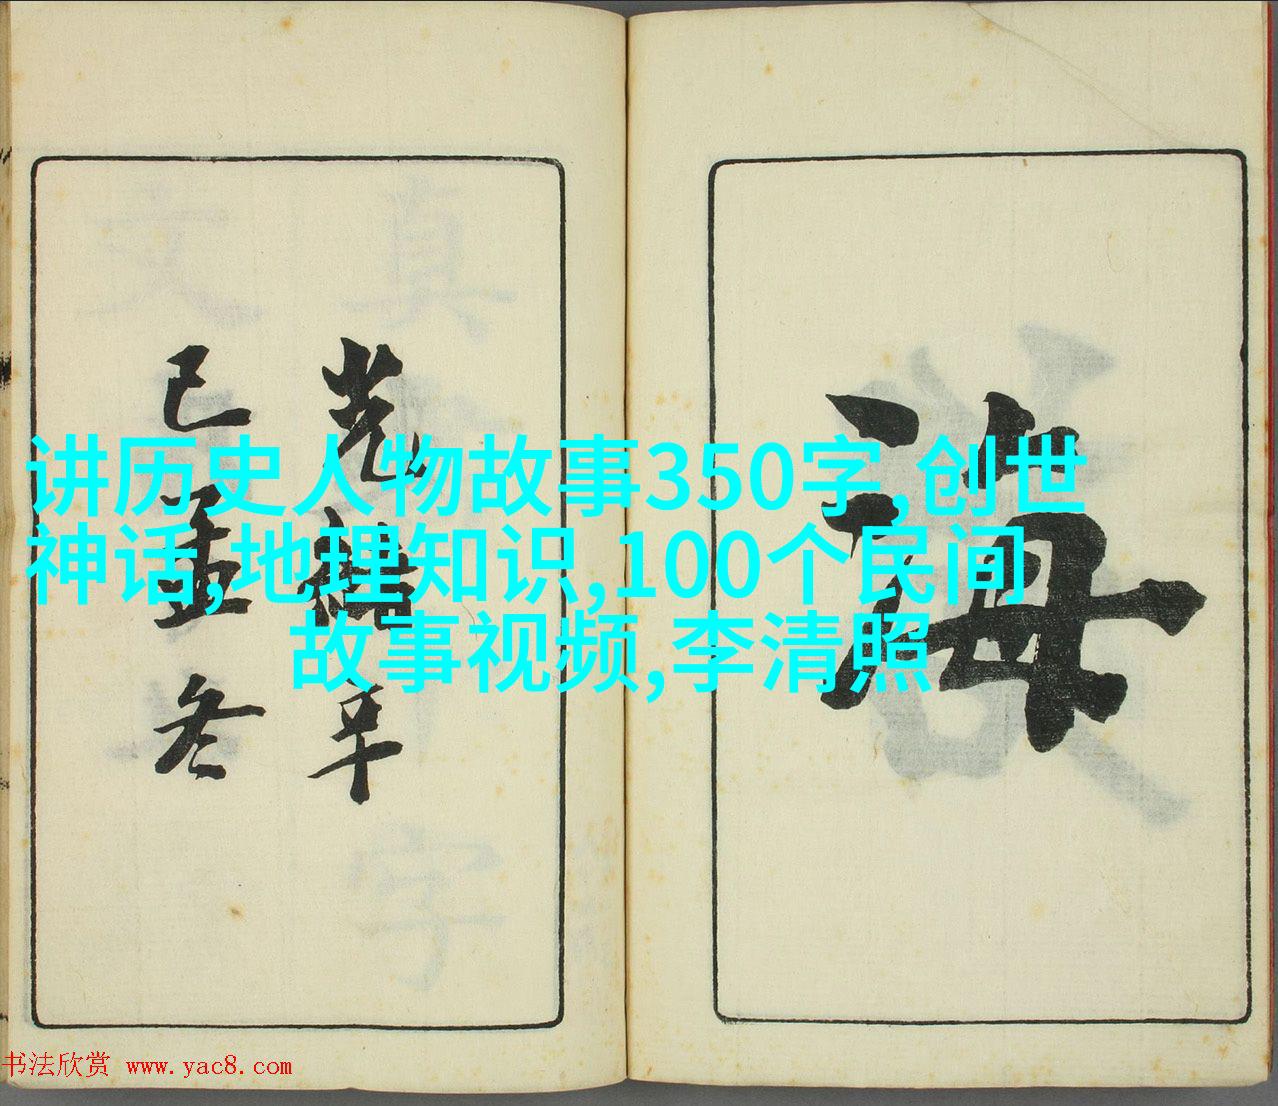 讲历史人物故事350字,创世
神话,地理知识,100个民间
故事视频,李清照
海
光绪年
已孟冬
书法欣赏 www.yac8.com